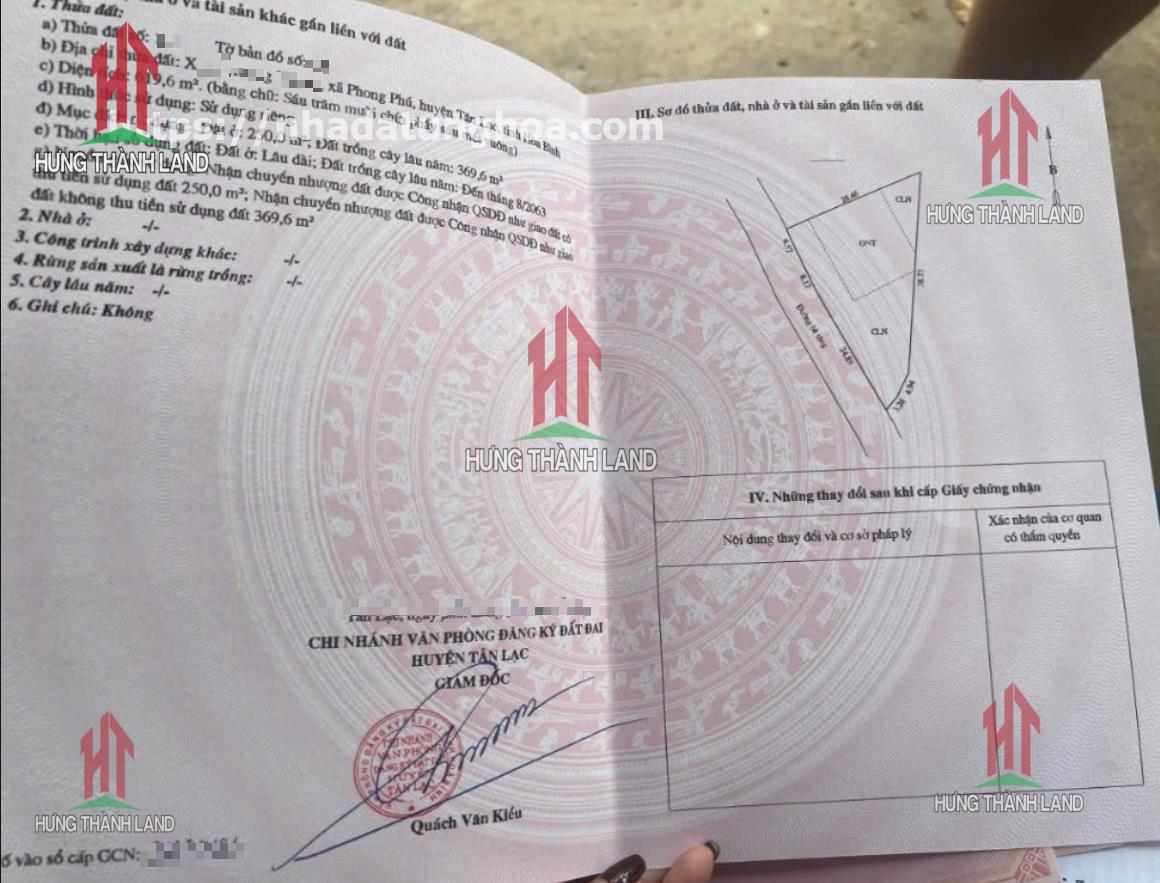 ở và tài sản khác gắn liền với đất
1. Thửa đất:
a) Thửa đất số: Tờ bản đồ số:
b) Địa chỉ thửa đất: X xã Phong Phú, huyện Tân Lạc, tỉnh Hòa Bình
c) Diện tích: 619,6 m². (bằng chữ: Sáu trăm mười chín phẩy sáu mét vuông)
d) Hình thức sử dụng: Sử dụng riêng
đ) Mục đích sử dụng: Đất ở: 250,0 m²; Đất trồng cây lâu năm: 369,6 m²
e) Thời hạn sử dụng đất: Đất ở: Lâu dài; Đất trồng cây lâu năm: Đến tháng 8/2063
Nhận chuyển nhượng đất được Công nhận QSDĐ như giao đất có
thu tiền sử dụng đất 250,0 m²; Nhận chuyển nhượng đất được Công nhận QSDĐ như giao
đất không thu tiền sử dụng đất 369,6 m²
2. Nhà ở: -/-
3. Công trình xây dựng khác: -/-
4. Rừng sản xuất là rừng trồng: -/-
5. Cây lâu năm: -/-
6. Ghi chú: Không
CHI NHÁNH VĂN PHÒNG ĐĂNG KÝ ĐẤT ĐAI
HUYỆN TÂN LẠC
GIÁM ĐỐC
CHI NHÁNH
VĂN PHÒNG
ĐĂNG KÝ ĐẤT ĐAI
HUYỆN
TÂN LẠC
Quách Văn Kiều
số vào sổ cấp GCN:
III. Sơ đồ thửa đất, nhà ở và tài sản gắn liền với đất
B
CLN
ONT
4.57
8.37
CLN
Đường bê tông
24.89
3.26
4.94
IV. Những thay đổi sau khi cấp Giấy chứng nhận
Nội dung thay đổi và cơ sở pháp lý
Xác nhận của cơ quan
có thẩm quyền
HƯNG THÀNH LAND
HƯNG THÀNH LAND
HƯNG THÀNH LAND
HƯNG THÀNH LAND
HƯNG THÀNH LAND